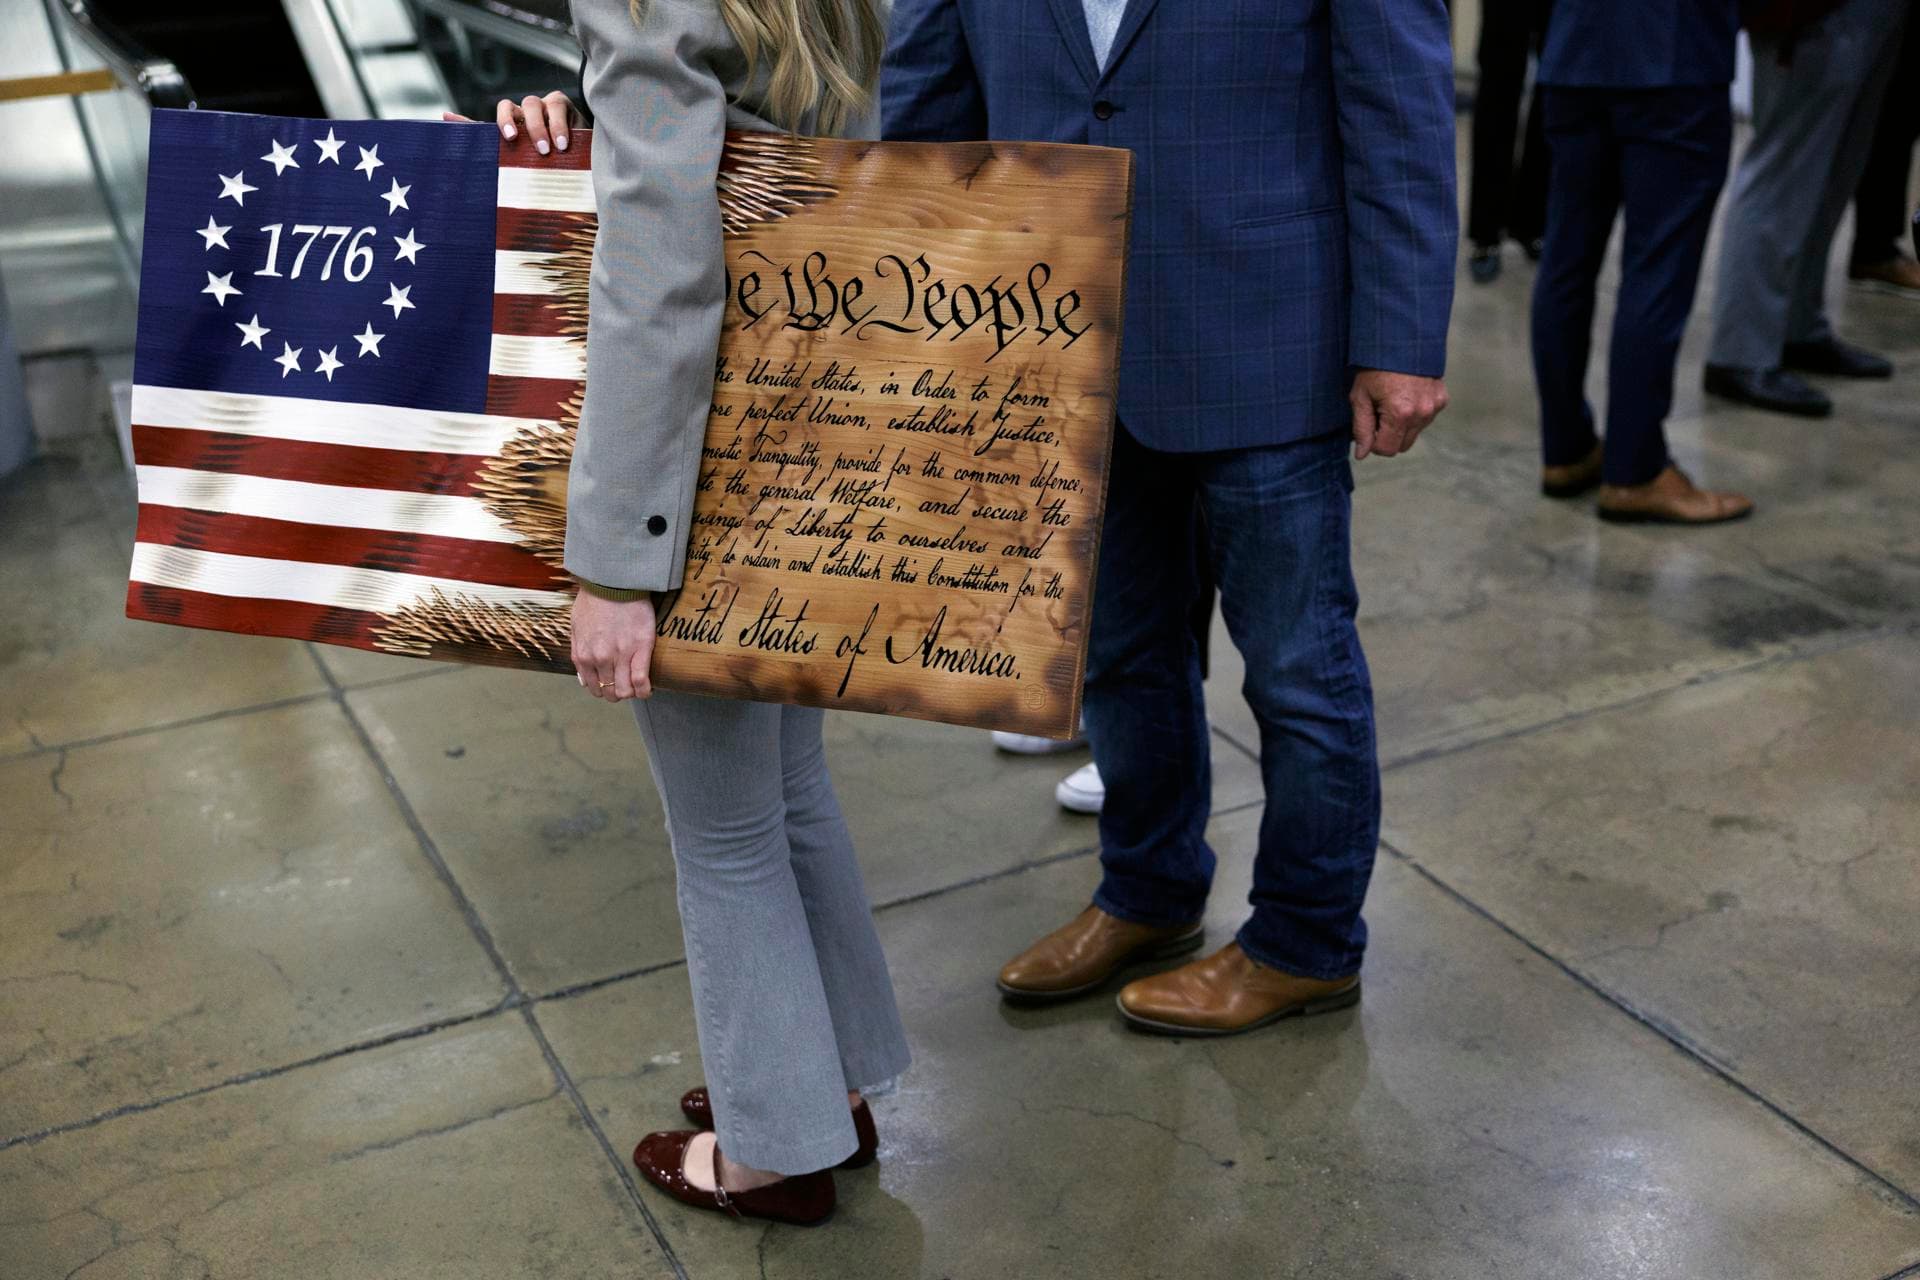 1776
e the People
the United States, in Order to form
ore perfect Union, establish Justice,
mestic Tranquility, provide for the common defence,
te the general Welfare, and secure the
ssings of Liberty to ourselves and
rity, do ordain and establish this Constitution for the
United States of America.